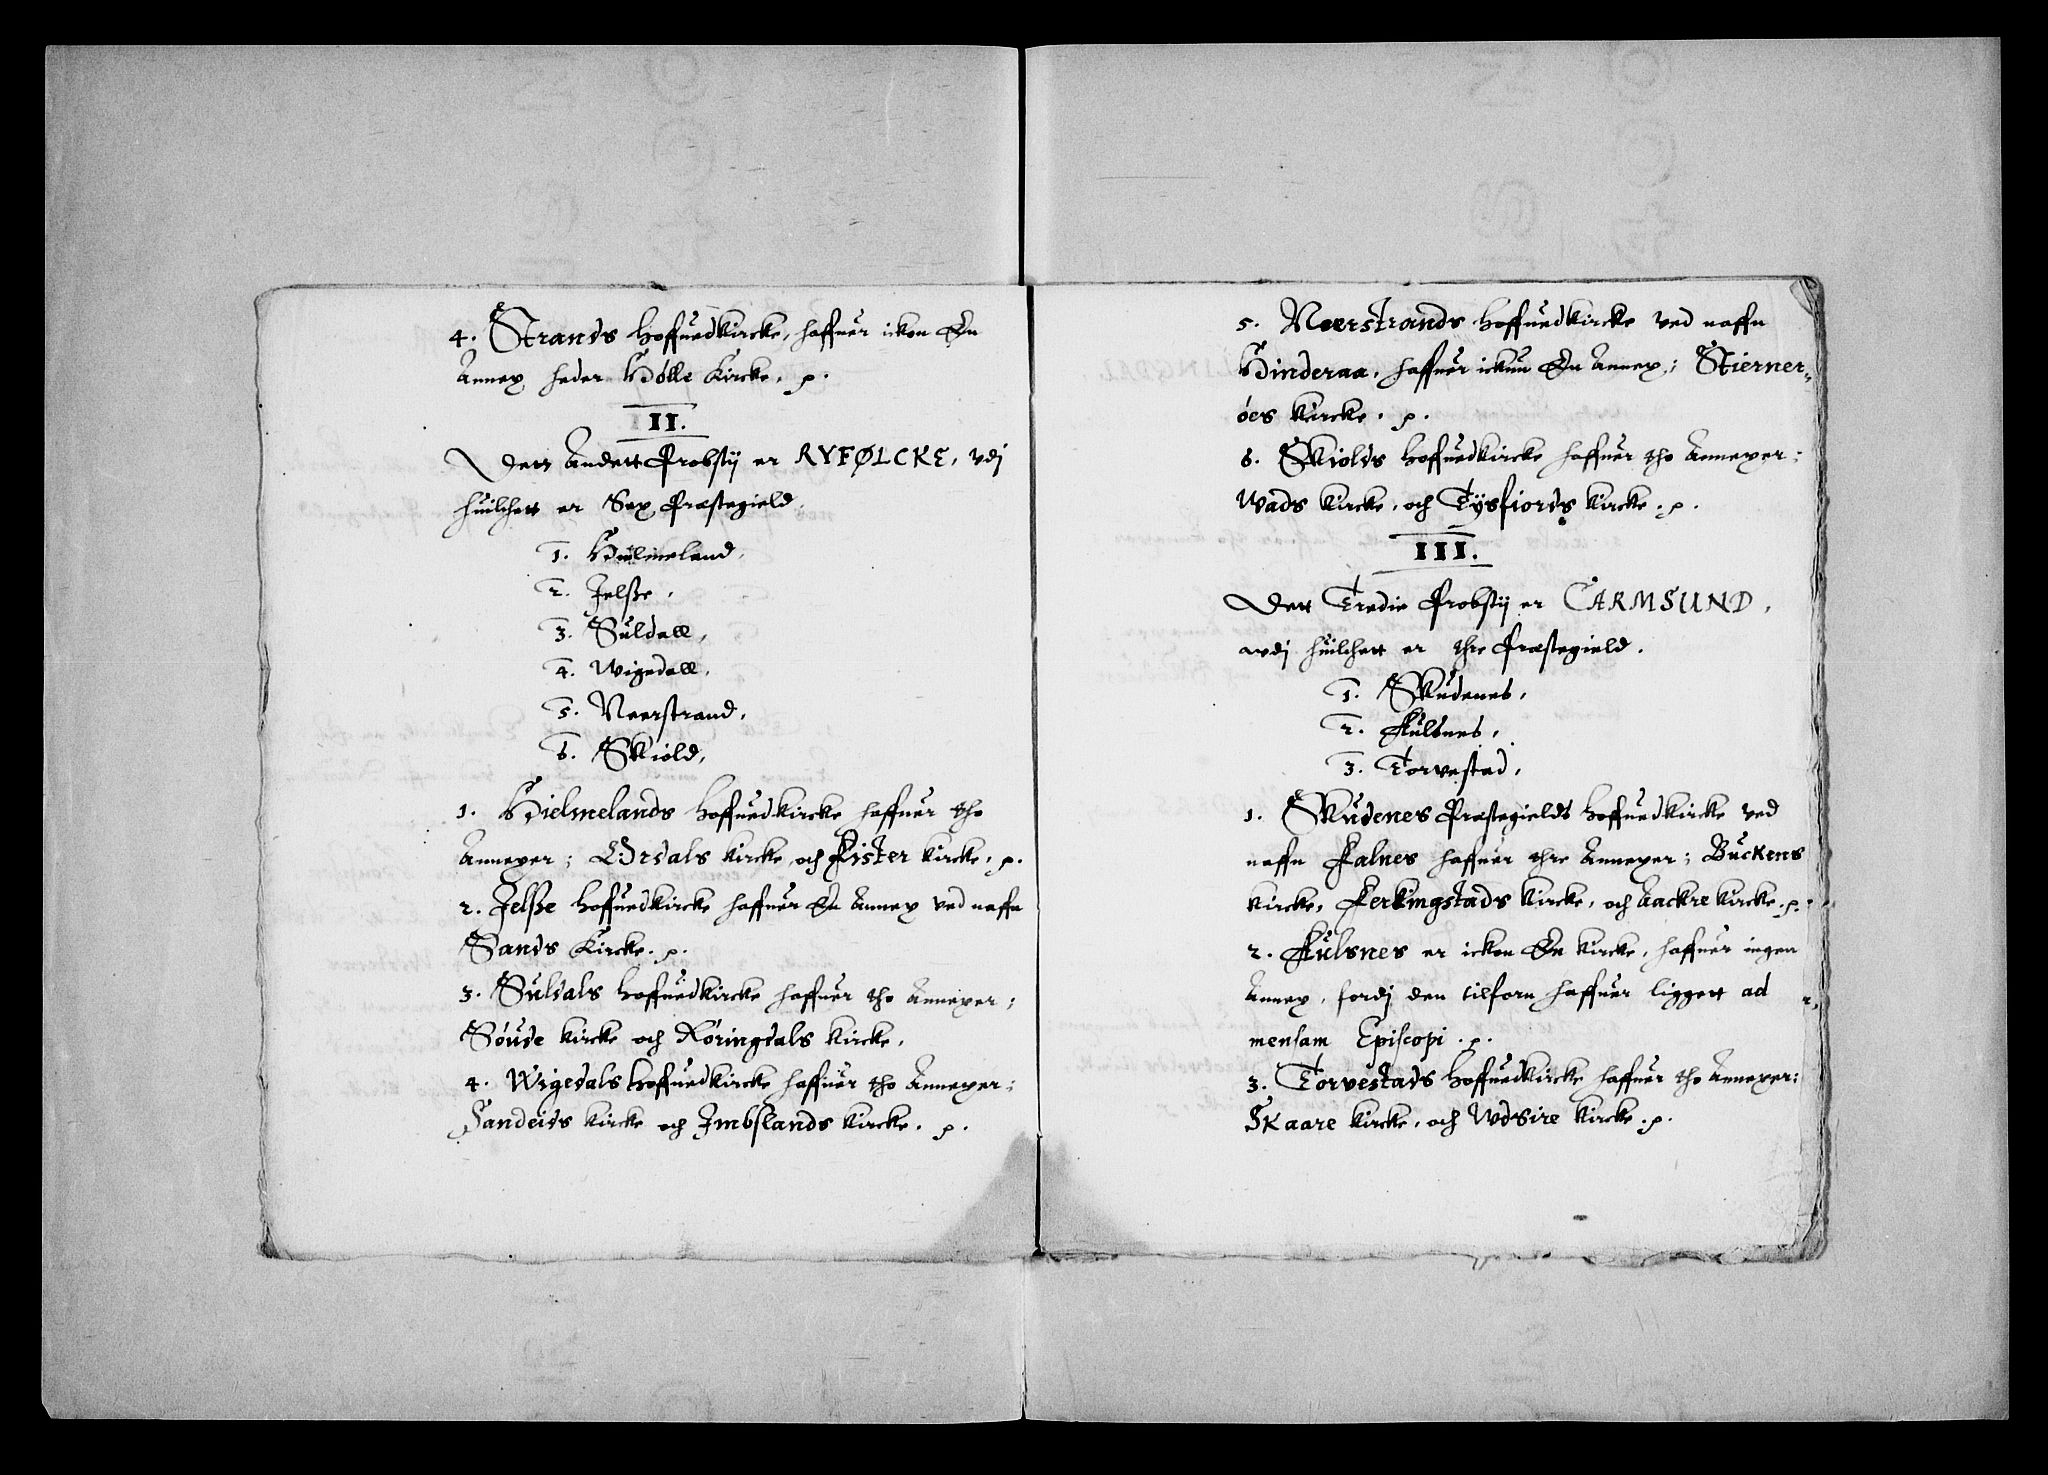 4. Strands hoffuedkircke, haffuer icken En
Annex heder Hölle Kircke. p.
II.
Dett Andett Probstij er RYFØLCKE, vdj
huilchett er Sex Præstegield.
1. Hielmeland,
2. Jelsße,
3. Suldall,
4. Wigedall,
5. Neerstrand,
6. Skiold,
1. Hielmelands hoffuedkircke haffuer tho
Annexer; Ørdals kircke och Fister kircke. p.
2. Jelsße hoffuedkircke haffuer En Annex ved naffn
Sands Kircke. p.
3. Suldals hoffuedkircke haffuer tho Annexer;
Söude kircke och Röringdals kircke.
4. Wigedals hoffuedkircke haffuer tho Annexer;
Sandeids kircke och Imbslands kircke. p.
5. Neerstrands hoffuedkircke ved naffn
Hinderaa, haffuer ickun En Annex; Stierner-
öes kircke. p.
6. Skiolds hoffuedkircke haffuer tho Annexer;
Wads kircke, och Tysfiords kircke. p.
III.
Dett Tredie Probstij er CARMSUND,
vdj huilchett er thre Præstegield.
1. Skudenes,
2. Fulsnes,
3. Torvestad,
1. Skudenes Præstegields hoffuedkircke ved
naffn Falnes haffuer thre Annexer; Buckens
kircke, Ferkingstads kircke, och Aackre kircke. p.
2. Fulsnes er icken En kircke, haffuer ingen
Annex, fordj den tilforn haffuer liggett ad
mensam Episcopi. p.
3. Torvestads hoffuedkircke haffuer tho Annexer;
Skaare kircke, och Wdsire kircke. p.